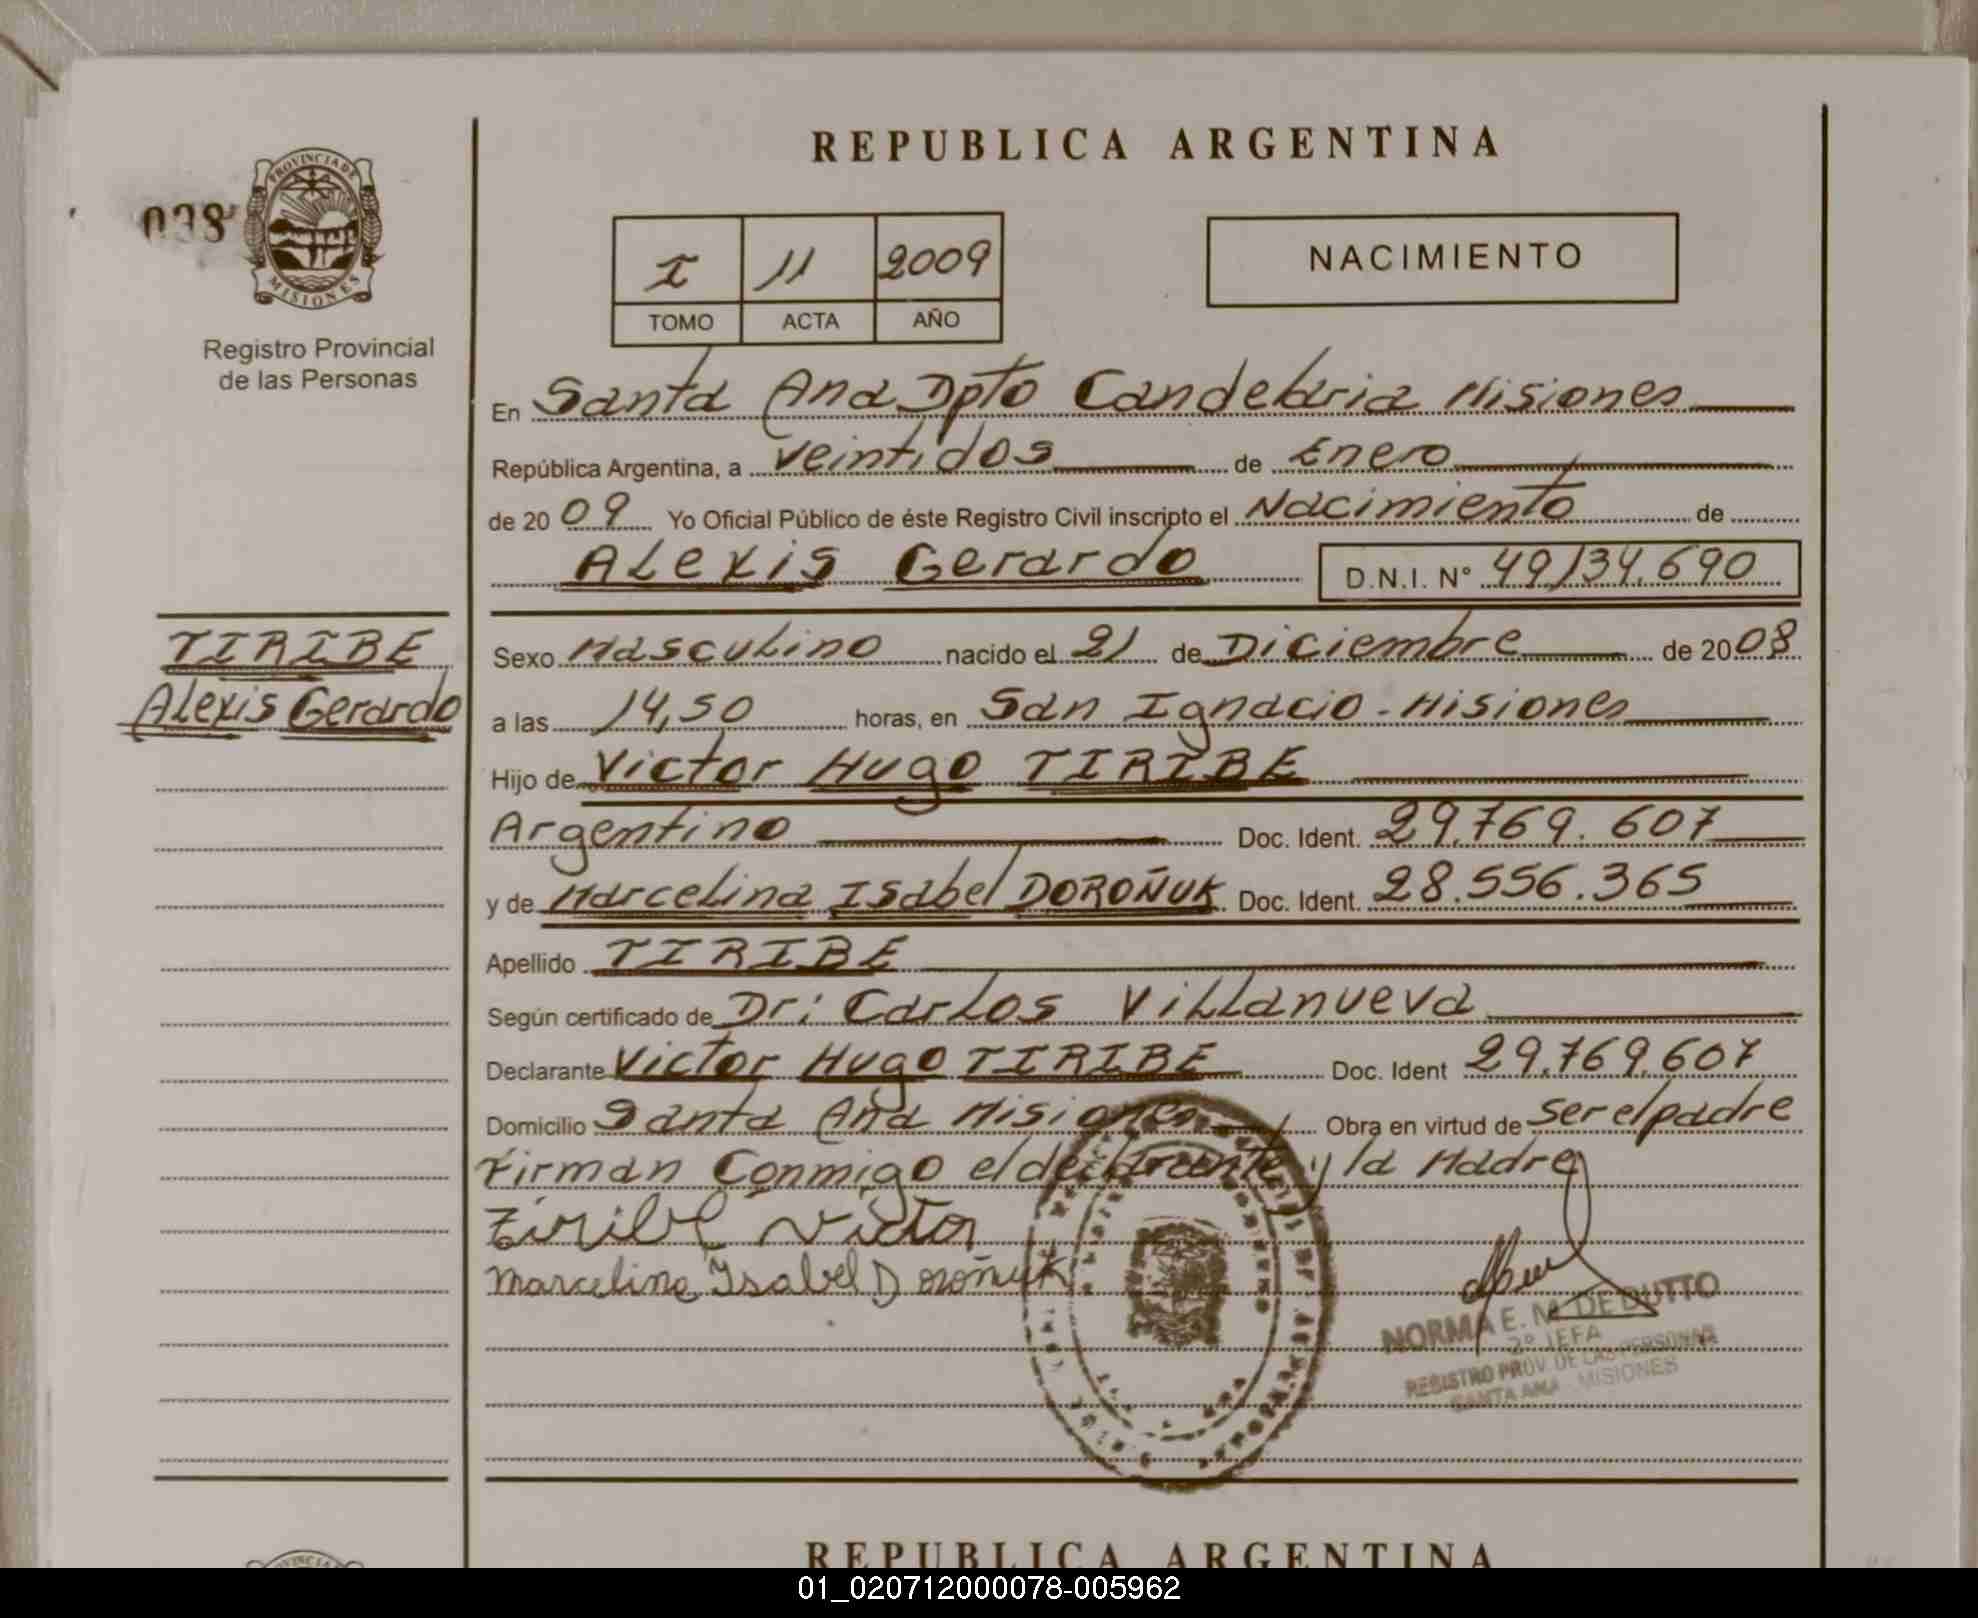 REPUBLICA ARGENTINA
038
PROVINCIA DE
MISIONES
Registro Provincial
de las Personas
I 11 2009
TOMO ACTA AÑO
NACIMIENTO
En Santa Ana Dpto Candelaria Misiones
República Argentina, a veintidos de Enero
de 2009 Yo Oficial Público de éste Registro Civil inscripto el Nacimiento de
Alexis Gerardo D.N.I. N° 49134.690
TIRIBE
Alexis Gerardo
Sexo Masculino nacido el 21 de Diciembre de 2008
a las 14,50 horas, en San Ignacio - Misiones
Hijo de Victor Hugo TIRIBE
Argentino Doc. Ident. 29.769.607
y de Marcelina Isabel DOROÑUK Doc. Ident. 28.556.365
Apellido TIRIBE
Según certificado de Dr: Carlos Villanueva
Declarante Victor Hugo TIRIBE Doc. Ident 29.769.607
Domicilio Santa Ana Misiones Obra en virtud de ser el padre
Firman Conmigo el declarante y la Madre
Tiribe Victor
Marcelina Isabel Doroñuk
NORMA E. M. DE DUTTO
2° JEFA
REGISTRO PROV. DE LAS PERSONAS
SANTA ANA - MISIONES
REPUBLICA ARGENTINA
01_020712000078-005962